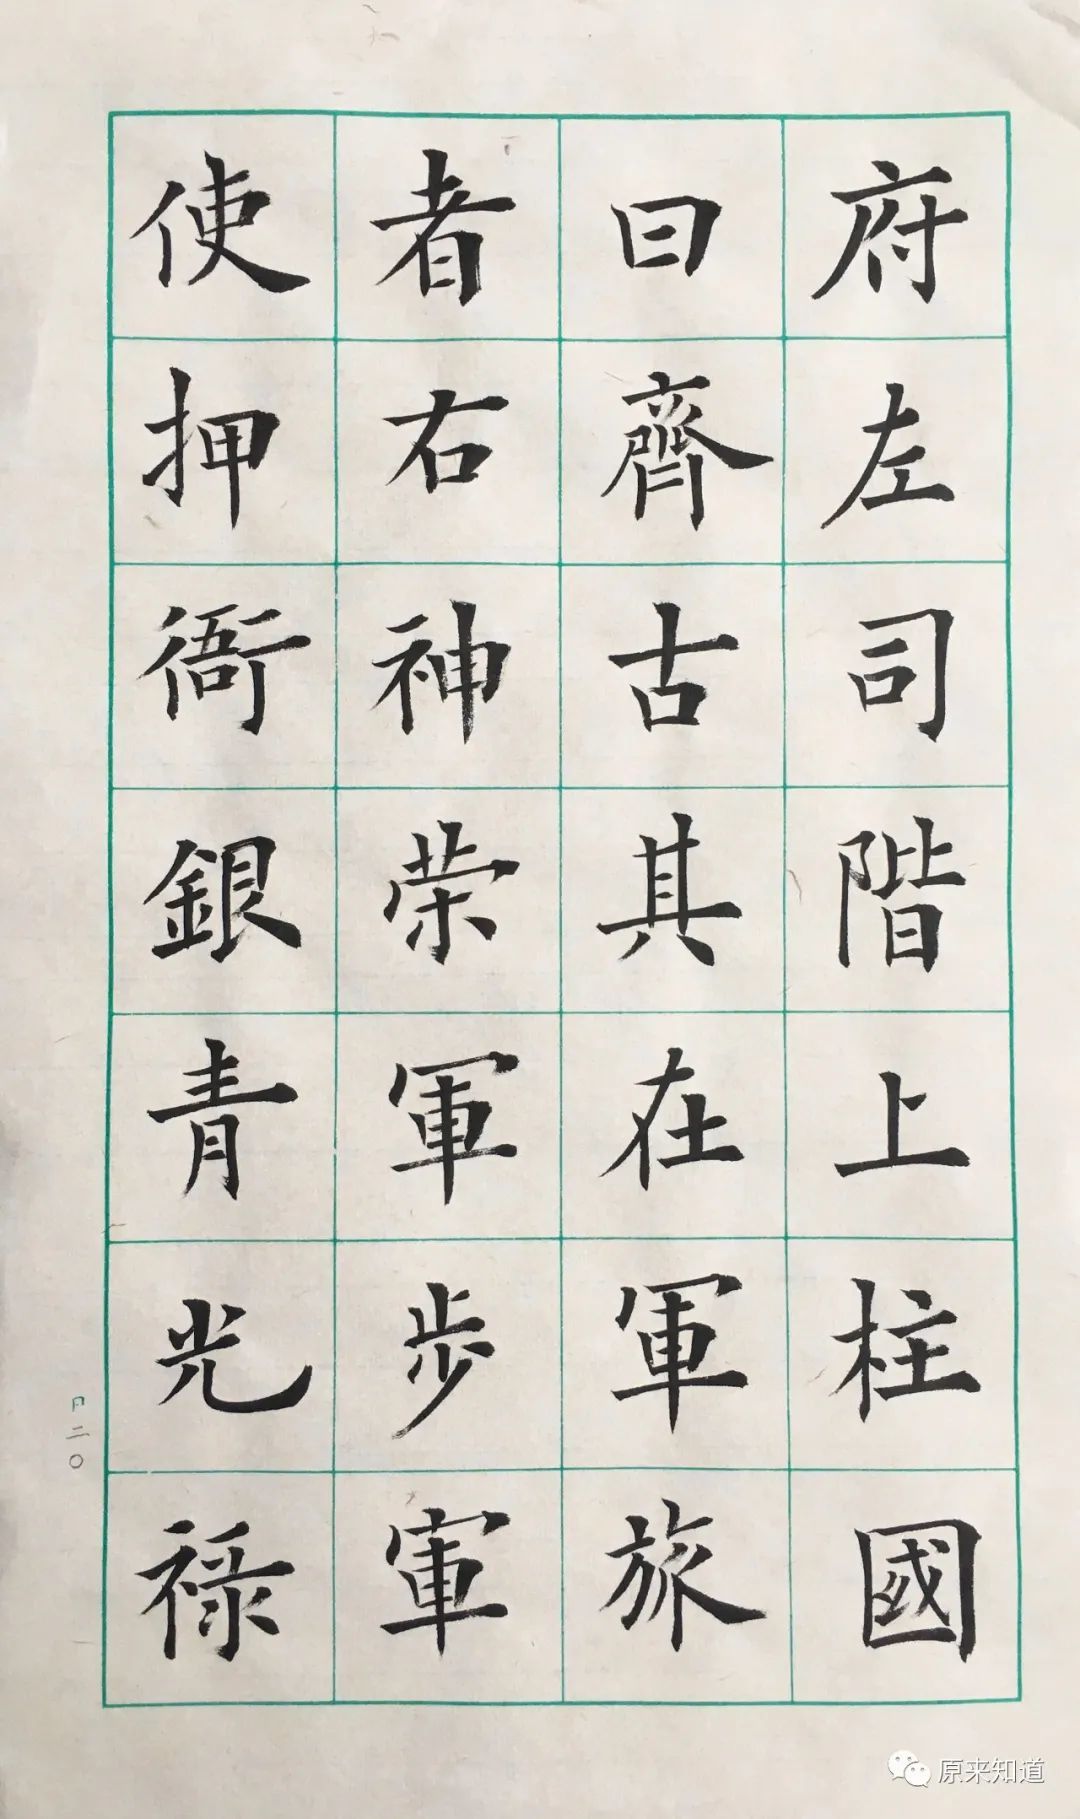 府左司階上柱國
曰齊古其在軍旅
者右神荣軍步軍
使押衙銀青光禄
P二〇
原来知道